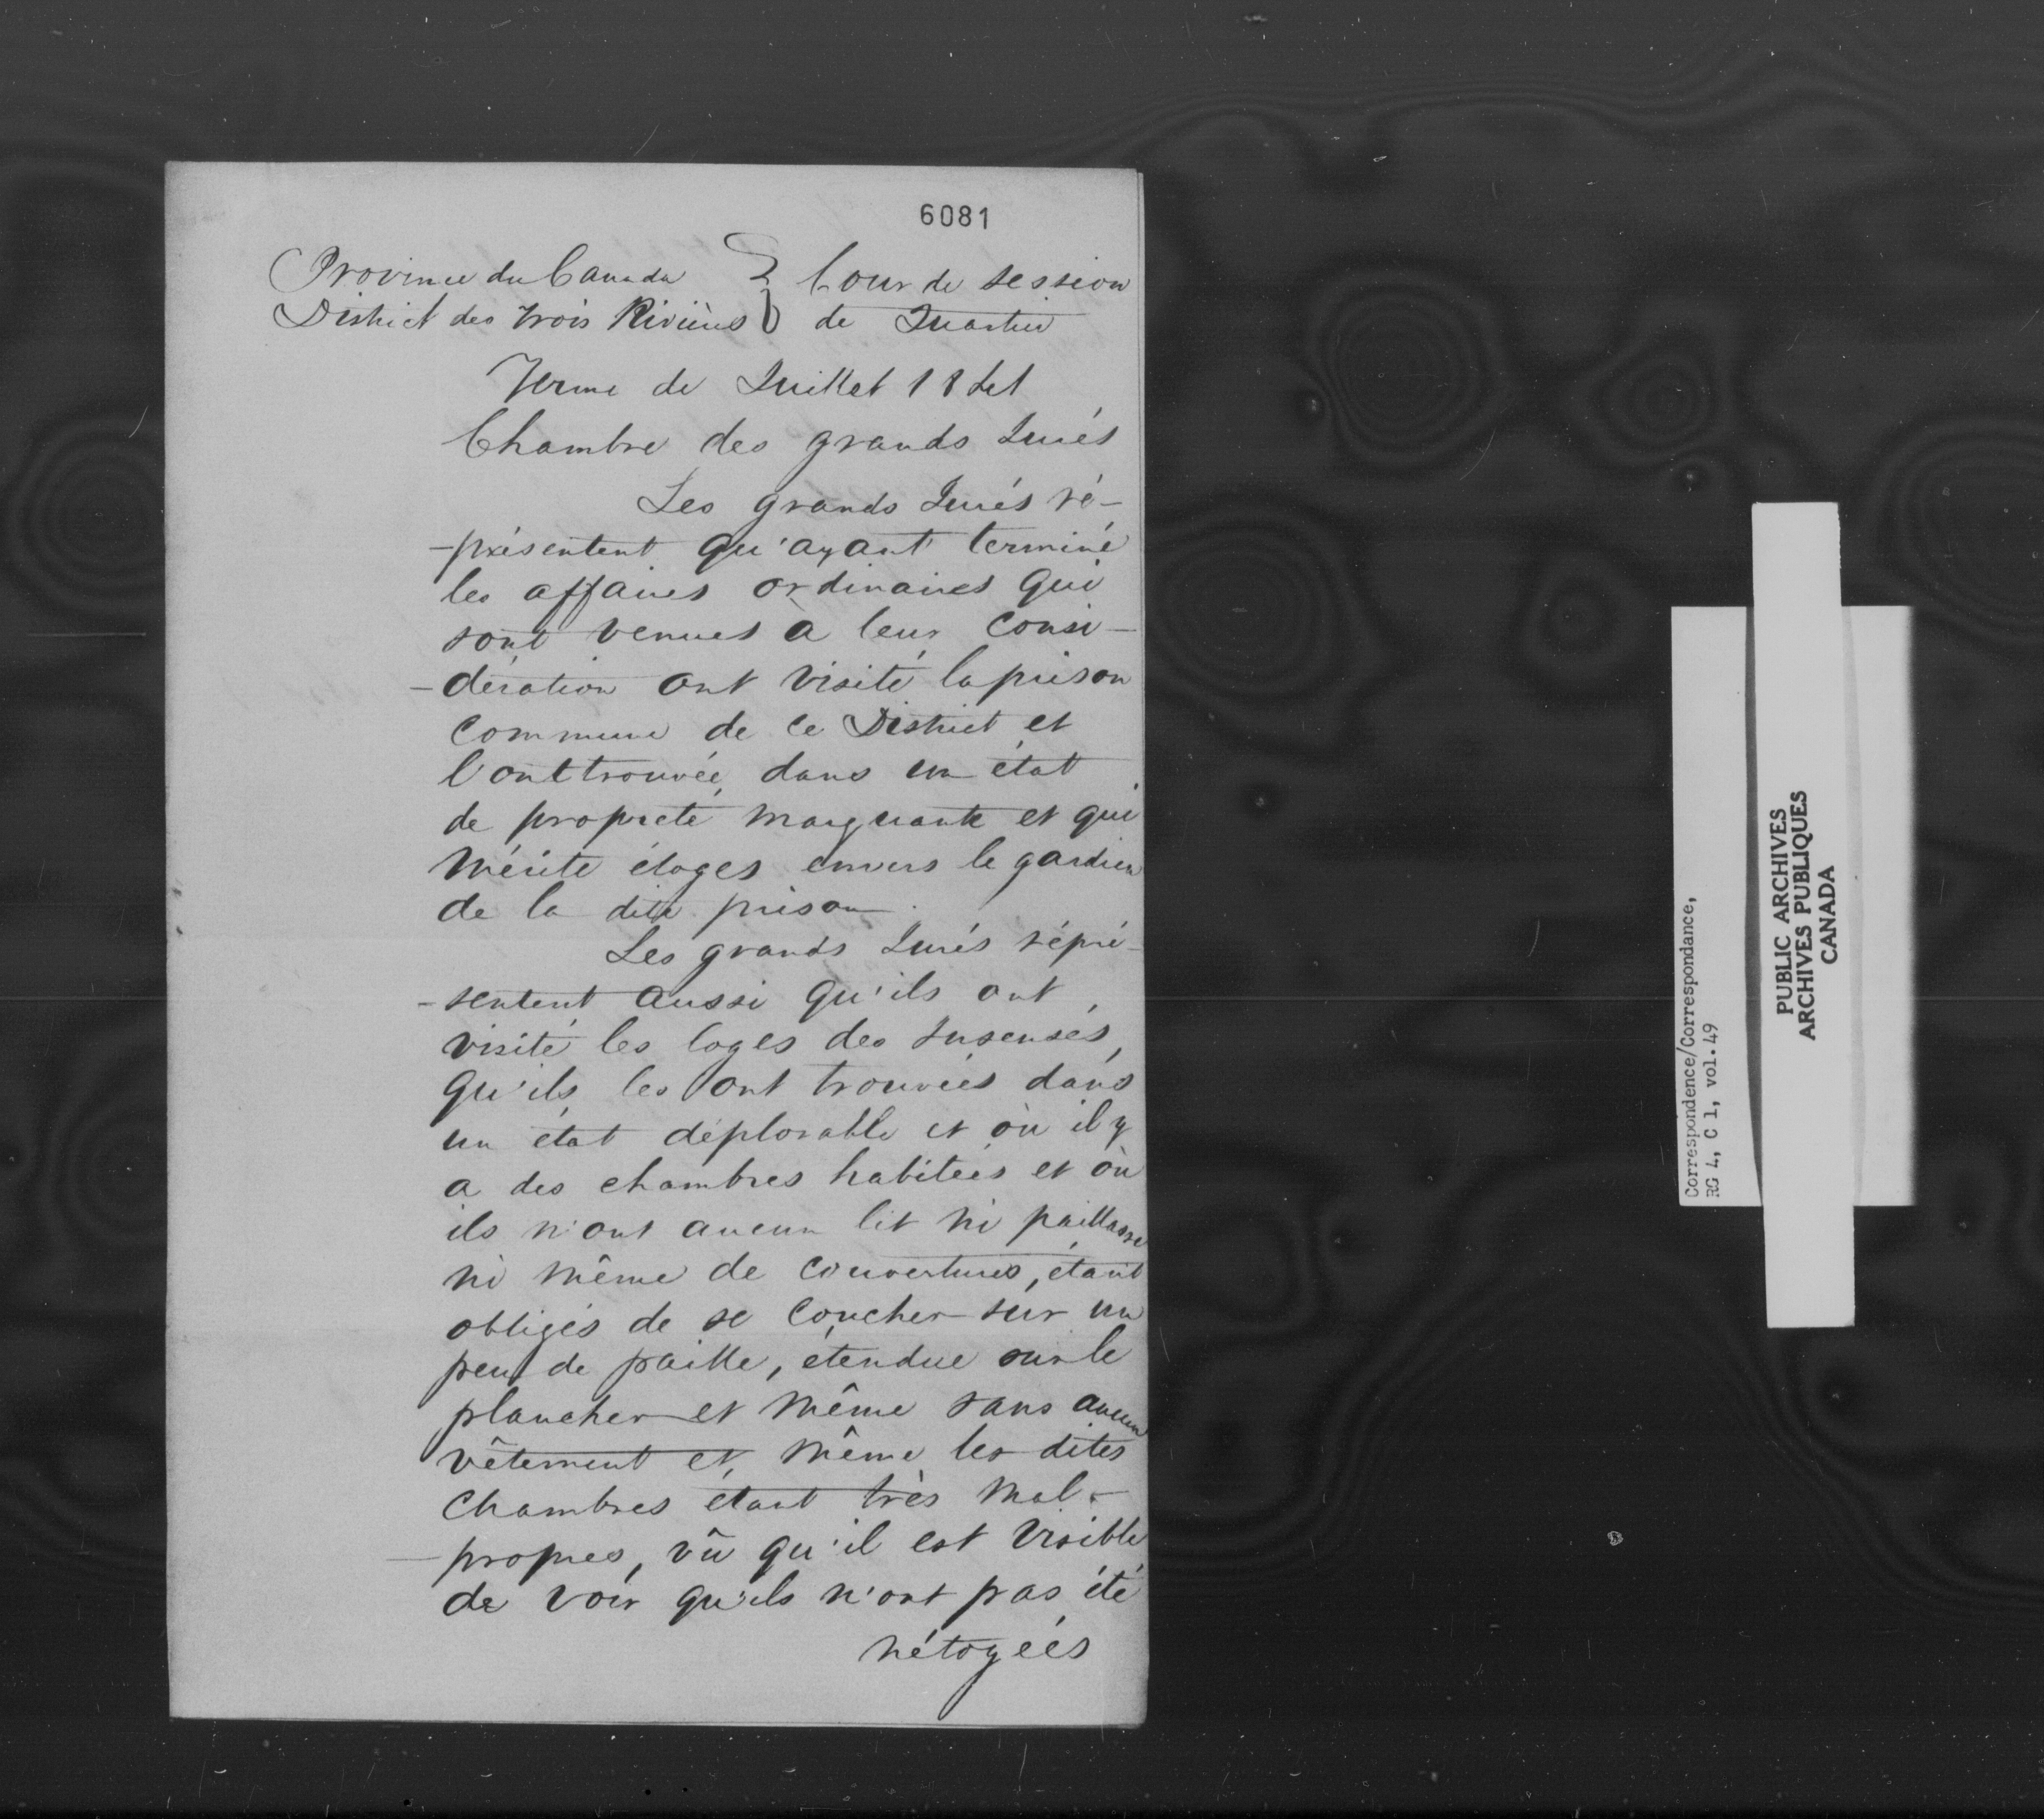 6081
Province du Canada
District des trois Rivières
Cour de session
de Quartier
Terme de Juillet
Chambre des grands Jurés
Les grands Jurés ré-
-présentent qu'ayant terminé
les affaires ordinaires qui
sont venues à leur consi-
-dération ont visité la prison
commune de ce District et
l'ont trouvée dans un état
de propreté marquante et qui
mérite éloges envers le gardien
de la dite prison.
Les grands Jurés répré-
-sentent aussi qu'ils ont
visité les loges des Insensés,
qu'ils les ont trouvées dans
un état déplorable et où il y
a des chambres habitées et où
ils n'ont aucun lit ni paillasse
ni même de couvertures, étant
obligés de se coucher sur un
peu de paille, étendue sur le
plancher et même sans aucun
vêtement et même les dites
chambres étant très mal-
-propres, vû qu'il est visible
de voir qu'ils n'ont pas été
nétoyées
Correspondence/Correspondance,
RG 4, C 1, vol.49
PUBLIC ARCHIVES
ARCHIVES PUBLIQUES
CANADA